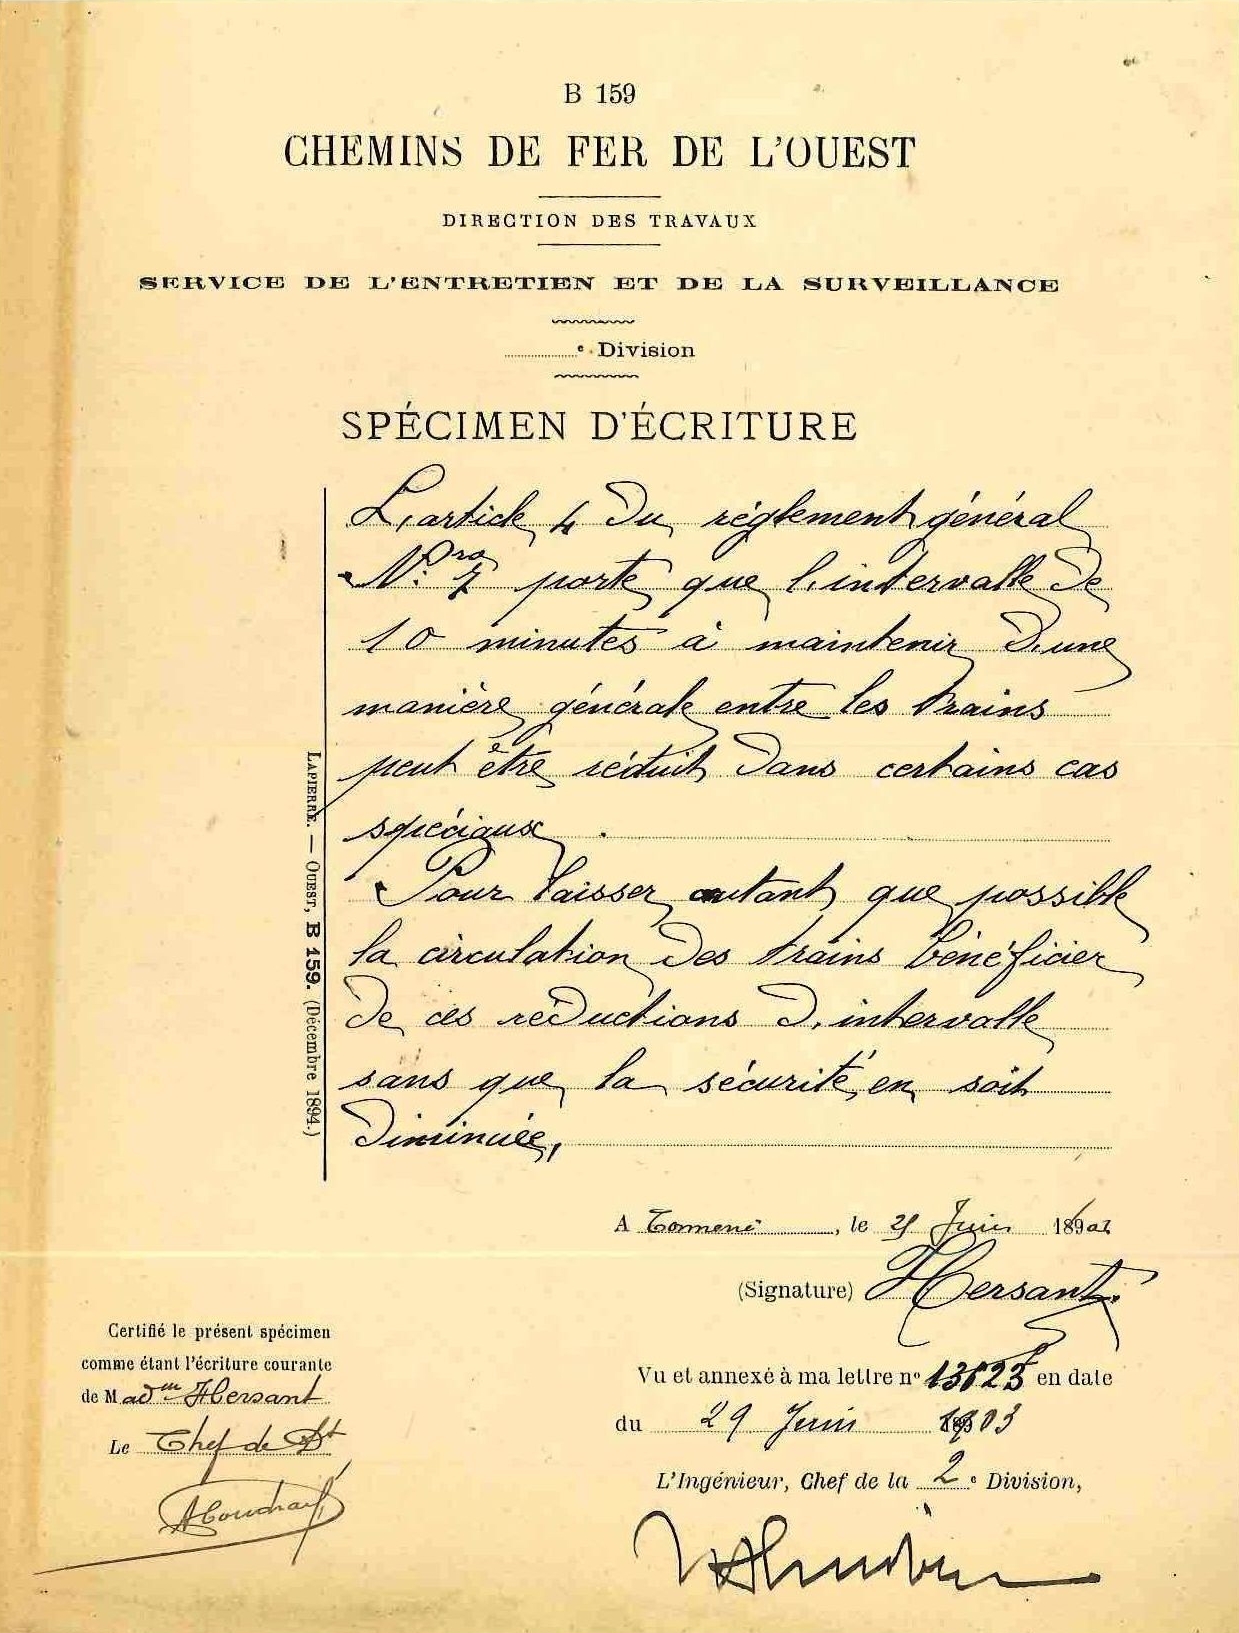 B 159
CHEMINS DE FER DE L'OUEST
DIRECTION DES TRAVAUX
SERVICE DE L'ENTRETIEN ET DE LA SURVEILLANCE
e Division
SPÉCIMEN D'ÉCRITURE
L'article 4 du réglement général
N° 7 porte que l'intervalle de
10 minutes à maintenir d'une
manière générale entre les trains
peut être réduit dans certains cas
spéciaux.
Pour laisser autant que possible
la circulation des trains bénéficier
de ces réductions d'intervalle
sans que la sécurité en soit
diminuée,
LAPIERRE. — OUEST, B 159. (Décembre 1894.)
A , le Juin
(Signature) Hersant
Certifié le présent spécimen
comme étant l'écriture courante
de Mad^m Hersant
Le Chef de Dt
Vu et annexé à ma lettre n° en date
du 29 Juin 1903
L'Ingénieur, Chef de la 2e Division,